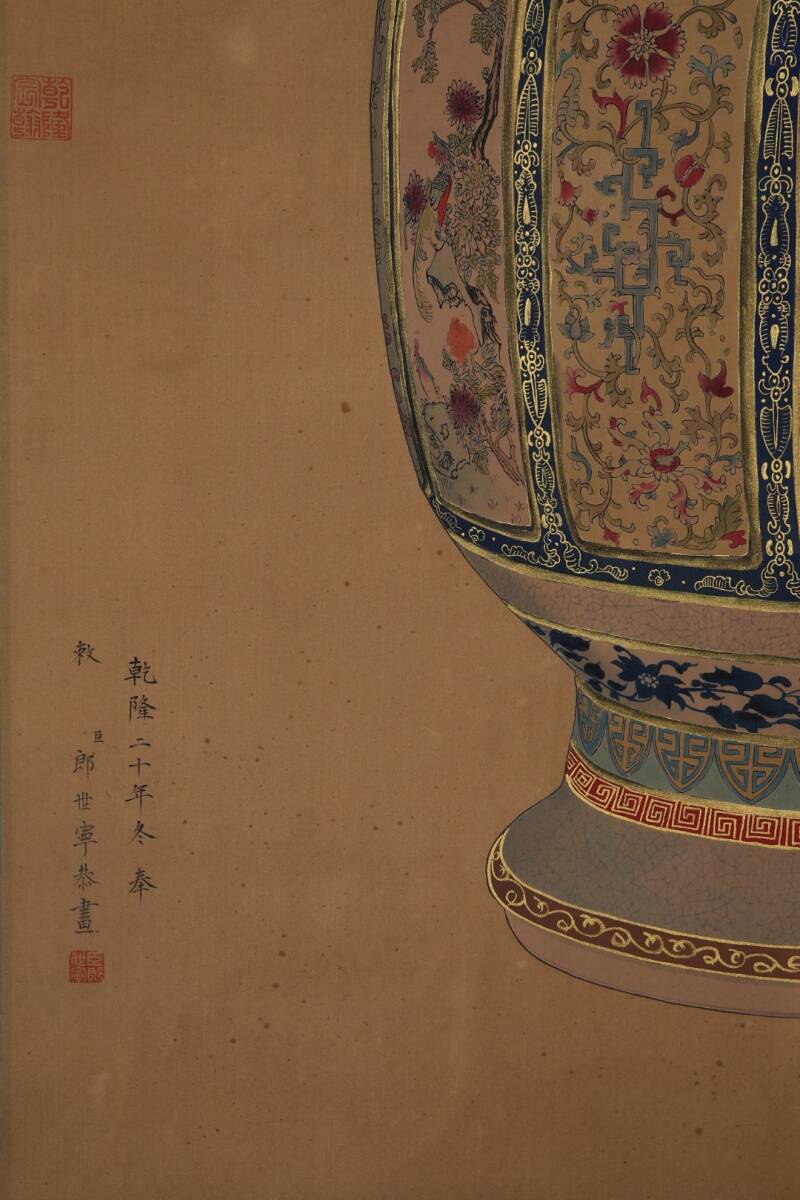 乾隆宸翰
乾隆二十年冬奉
敕
臣郎世寧恭畫
臣郎世寧